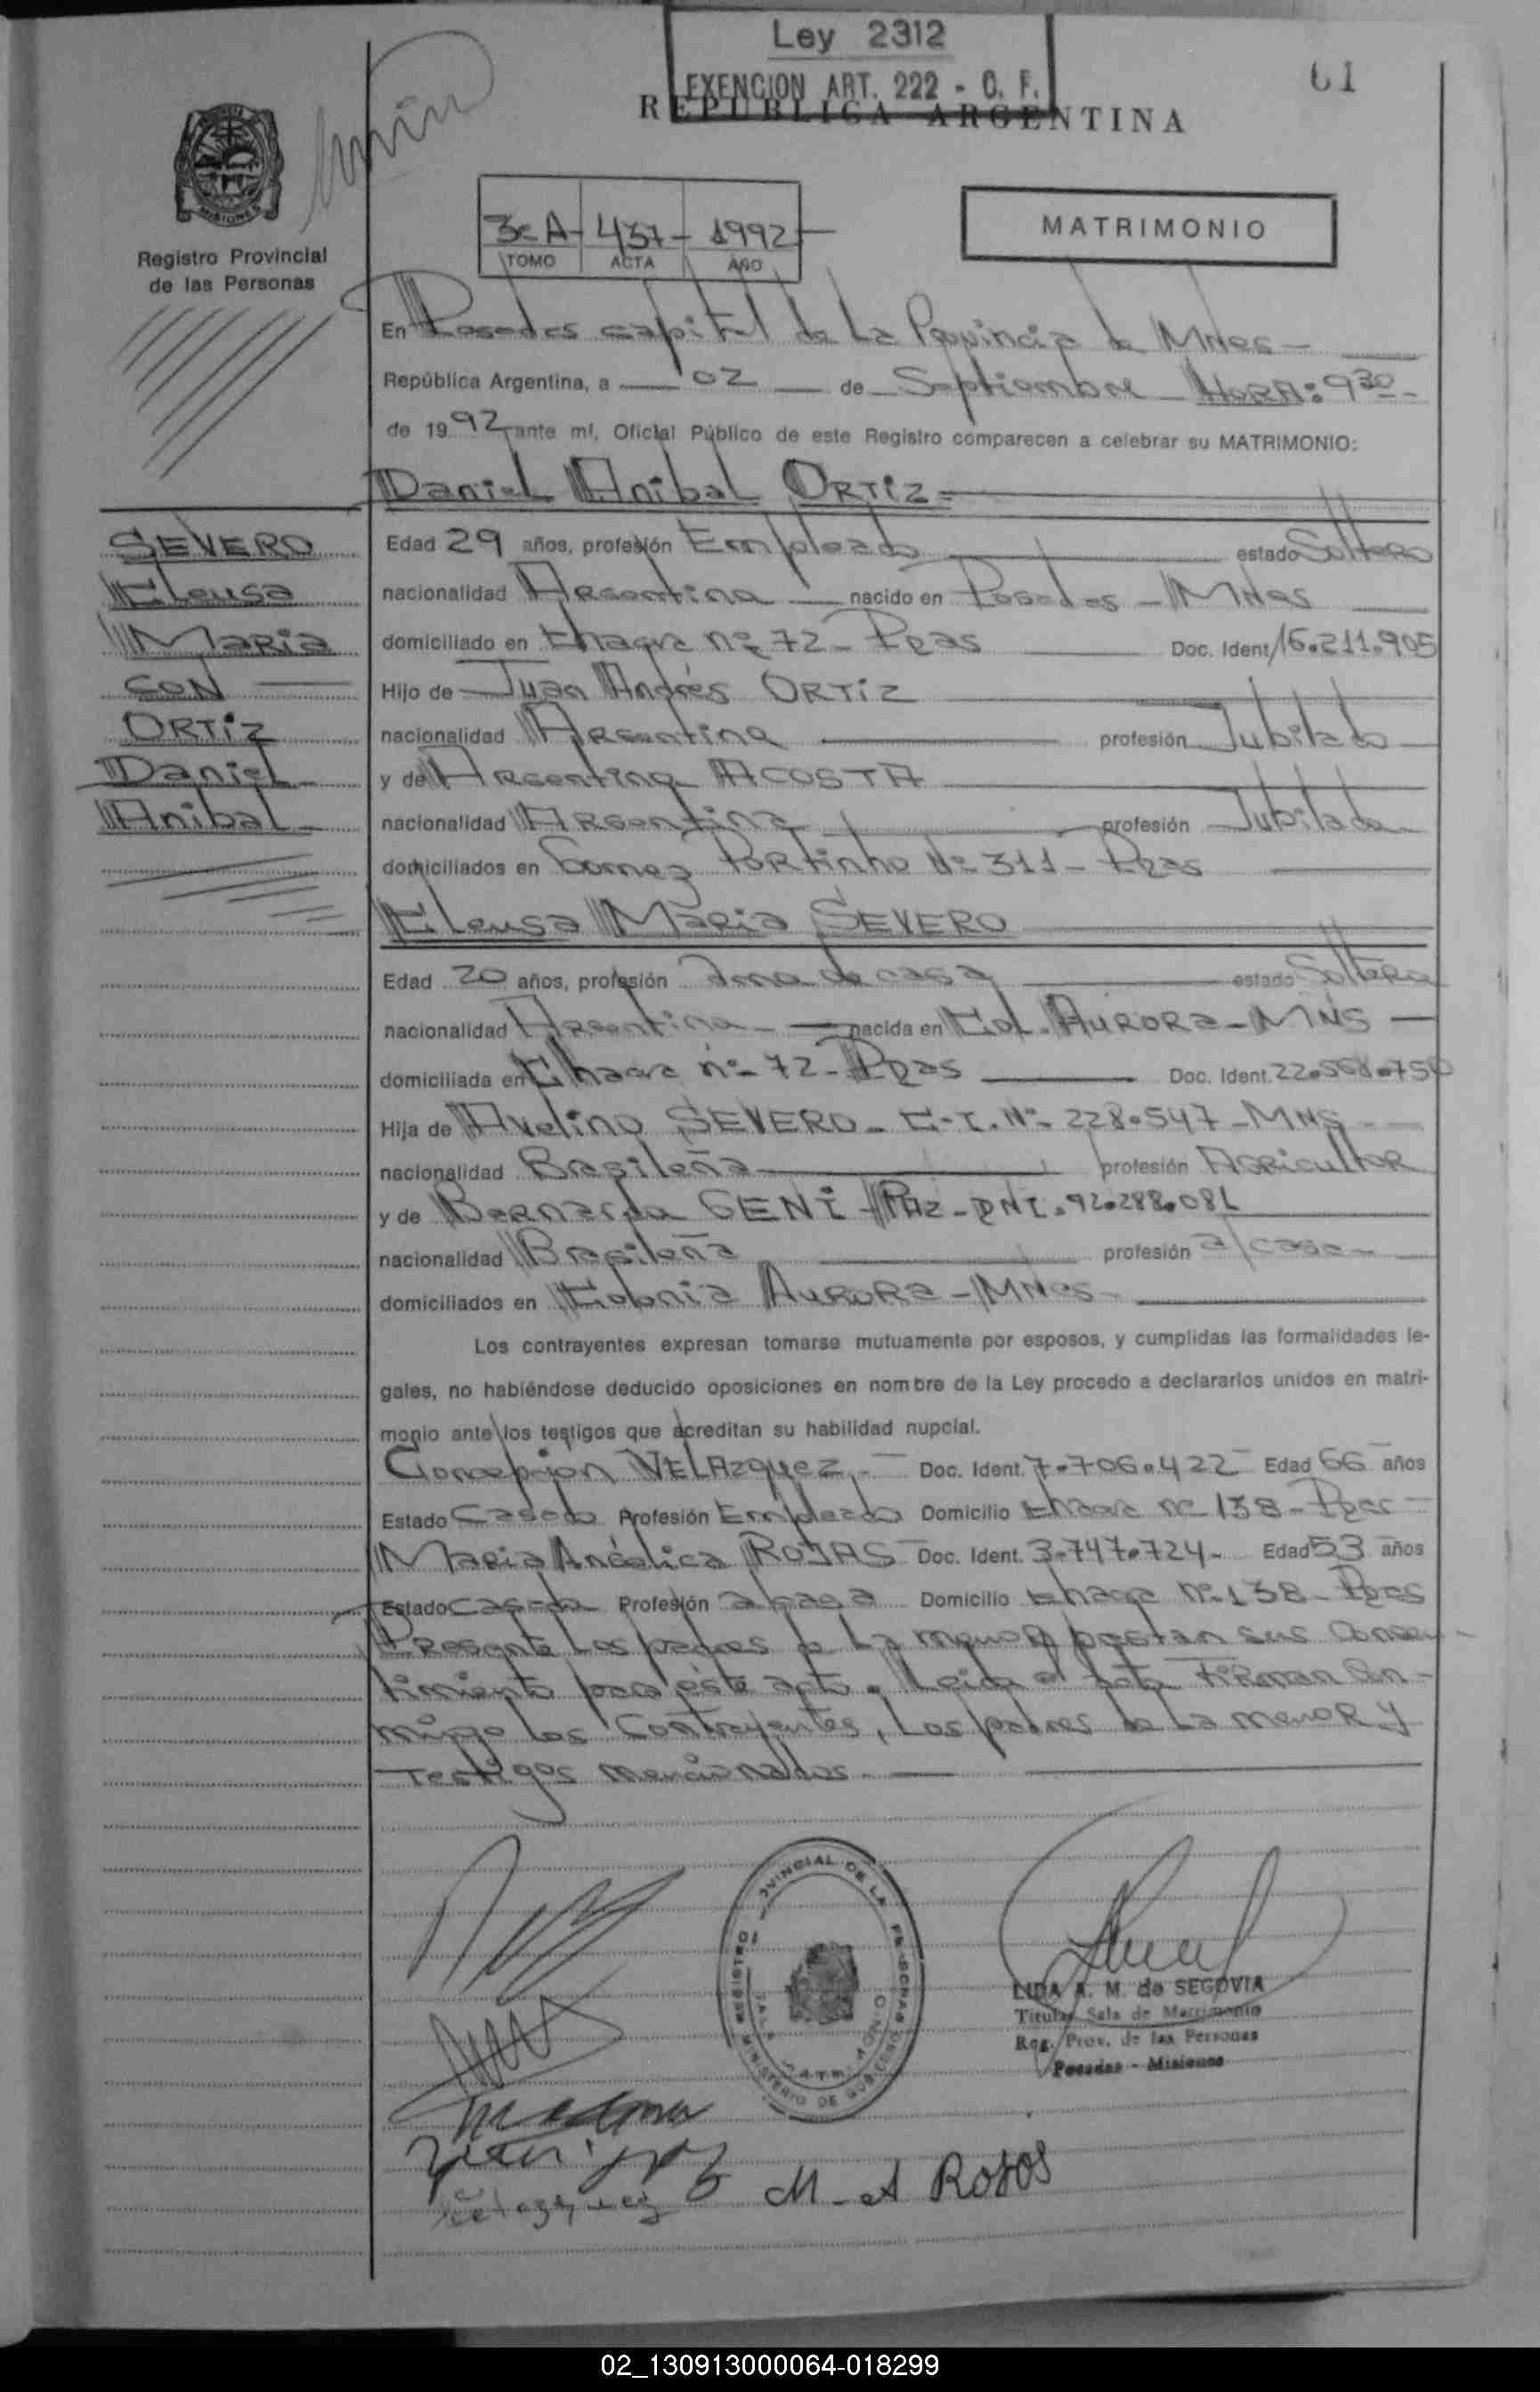 Ley 2312
EXENCION ART. 222 - C. F.
REPUBLICA ARGENTINA
61
3º A - 437 - 1992
TOMO ACTA AÑO
MATRIMONIO
MISIONES
Registro Provincial
de las Personas
En Posadas capital de La Provincia de MNes -
República Argentina, a 02 de Septiembre HORA: 9 30 -
de 1992 ante mí, Oficial Público de este Registro comparecen a celebrar su MATRIMONIO:
Daniel Anibal ORTiZ =
SEVERO
Cleusa
Maria
CON
ORTiZ
Daniel
Anibal
Edad 29 años, profesión Empleado estado Soltero
nacionalidad Argentina nacido en Posadas - MNes
domiciliado en Chacra nº 72 - Pdas Doc. Ident. 16.211.905
Hijo de Juan Andrés ORTiZ
nacionalidad Argentina profesión Jubilado
y de Argentina ACOSTA
nacionalidad Argentina profesión Jubilada
domiciliados en Gomez Portinho Nº 311 - Pdas
Cleusa Maria SEVERO
Edad 20 años, profesión Ama de casa estado Soltera
nacionalidad Argentina nacida en Col. AURORA - MNS
domiciliada en Chacra nº 72 - Pdas Doc. Ident. 22.568.750
Hija de Avelino SEVERO - C.I. Nº 228.547 - MNS
nacionalidad Brasileña profesión Agricultor
y de Bernarda GENI PAZ - DNI. 92.288.081
nacionalidad Brasileña profesión a/casa
domiciliados en Colonia AURORA - MNes
Los contrayentes expresan tomarse mutuamente por esposos, y cumplidas las formalidades le-
gales, no habiéndose deducido oposiciones en nombre de la Ley procedo a declararlos unidos en matri-
monio ante los testigos que acreditan su habilidad nupcial.
Concepcion VELAZquez - Doc. Ident. 7.706.422 Edad 66 años
Estado Casado Profesión Empleado Domicilio Chacra nº 138 - Pdas
Maria Angélica ROJAS Doc. Ident. 3.747.724 - Edad 53 años
Estado Casada Profesión a/casa Domicilio Chacra Nº 138 - Pdas
Presente Los padres de La menor prestan sus Consen-
timiento para éste acto. Leida el acta Firman Con-
migo los Contrayentes, Los padres de La menor y
Testigos mencionados.
REGISTRO PROVINCIAL DE LAS PERSONAS
MINISTERIO DE GOBIERNO
SALA MATRIMONIO
LIDA A. M. de SEGOVIA
Titular Sala de Matrimonio
Reg. Prov. de las Personas
Posadas - Misiones
Velazquez
M-A Rojas
02_130913000064-018299